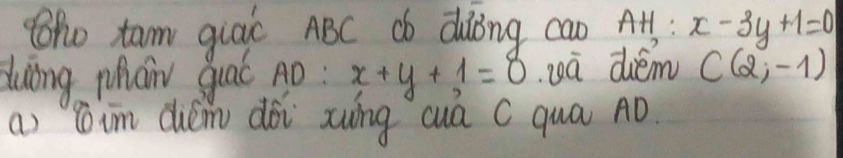 Cho tam giác ABC có đường cao AH : x - 3y + 1 = 0
đường phân giác AD : x + y + 1 = 0 . và điểm C (2; -1)
a) Tìm điểm đối xứng của C qua AD.